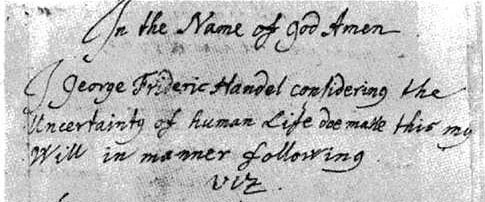 In the Name of God Amen
I George Frideric Handel considering the
Uncertainty of human Life doe make this my
Will in manner following
viz.